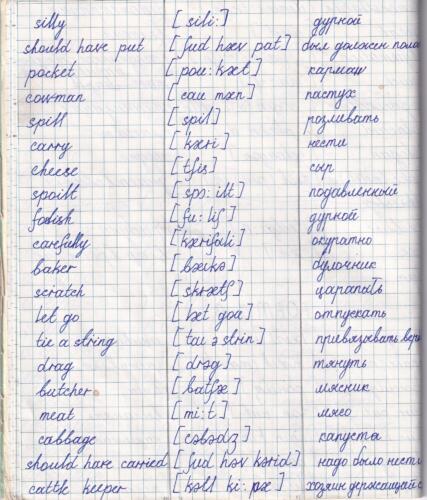 silly [sili:] дурной
should have put [ʃud hæv pat] был должен поло
pocket [pou:kæt] карман
cowman [cau mæn] пастух
spill [spil] розливать
carry [kæri] нести
cheese [tʃis] сыр
spoilt [spɔ:ilt] подавленный
foolish [fu:liʃ] дурной
carefully [kærifuli] окуратно
baker [bæikə] булочник
scratch [skrætʃ] царапать
let go [læt gou] отпускать
tie a string [tai ə strin] привязывать верё
drag [drəg] тянуть
butcher [batʃæ] мясник
meat [mi:t] мясо
cabbage [cəbədʒ] капуста
should have carried [ʃud həv kərid] надо было нести
cattle keeper [kətl ki:pæ] хозяин держащий с